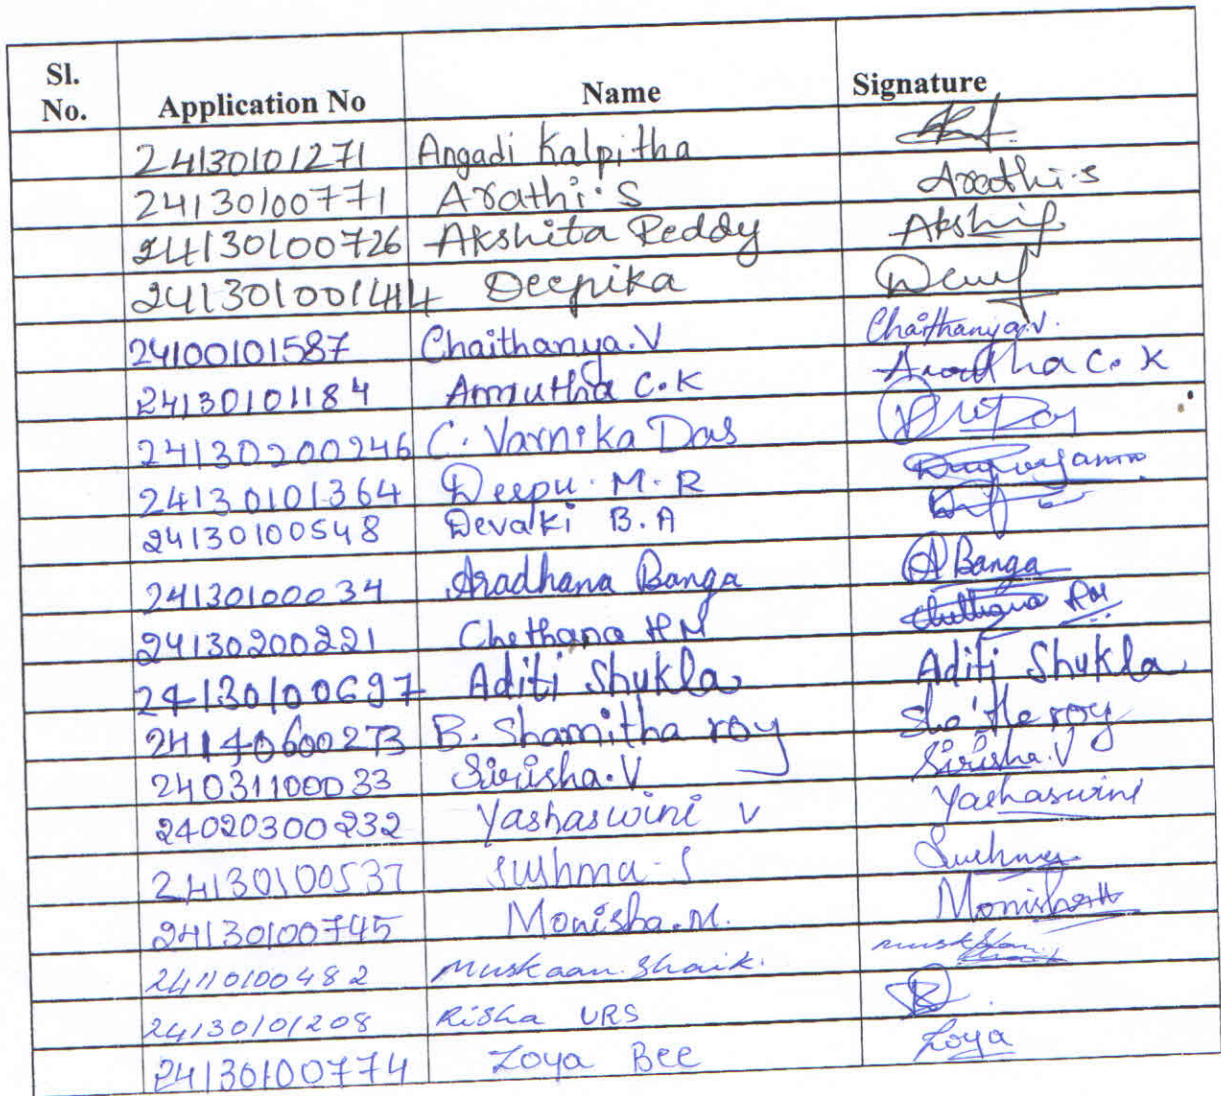 Sl. No. Application No Name Signature
24130101271 Angadi Kalpitha
24130100771 Arathi.S Arathi.s
24130100726 Akshita Reddy
24130100144 Deepika
24100101587 Chaithanya.V Chaithanya.V.
24130101184 Amrutha C.K C.K
24130200246 C. Varnika Das
24130101364 Deepu.M.R
24130100548 Devaki B.A
24130100034 Aradhana Banga A Banga
24130200221 Chethana HM Chethana HM
24130100697 Aditi Shukla Aditi Shukla
24140600273 B. Shamitha roy roy
24031100033 Sirisha.V Sirisha.V
24020300232 Yashaswini V Yashaswini
24130100537 Sushma-S Sushma
24130100745 Monisha.M. Monisha
24110100482 Muskaan.Shaik.
24130101208 Risha URS
24130100774 Zoya Bee Zoya